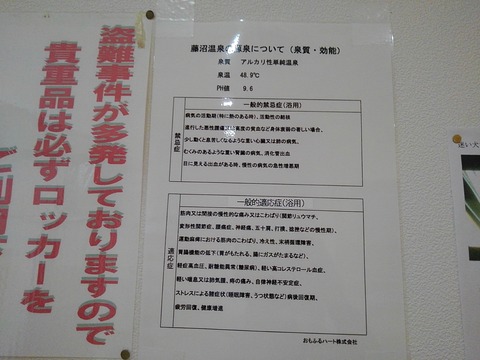 盗難事件が多発しておりますので
貴重品は必ずロッカーを
ご利用
藤沼温泉の源泉について（泉質・効能）
泉質 アルカリ性単純温泉
泉温 48.9℃
PH値 9.6
一般的禁忌症（浴用）
禁忌症
病気の活動期（特に熱のある時）、活動性の結核
進行した悪性腫瘍又は高度の貧血など身体衰弱の著しい場合、
少し動くと息苦しくなるような重い心臓又は肺の病気、
むくみのあるような重い腎臓の病気、消化管出血
目に見える出血がある時、慢性の病気の急性増悪期
一般的適応症（浴用）
適応症
筋肉又は関節の慢性的な痛み又はこわばり（関節リュウマチ、
変形性関節症、腰痛症、神経痛、五十肩、打撲、捻挫などの慢性期）
運動麻痺における筋肉のこわばり、冷え性、末梢循環障害、
胃腸機能の低下（胃がもたれる、腸にガスがたまるなど）、
軽症高血圧、耐糖能異常（糖尿病）、軽い高コレステロール血症、
軽い喘息又は肺気腫、痔の痛み、自律神経不安定症、
ストレスによる諸症状（睡眠障害、うつ状態など）病後回復期、
疲労回復、健康増進
おもふるハート株式会社
迷い犬